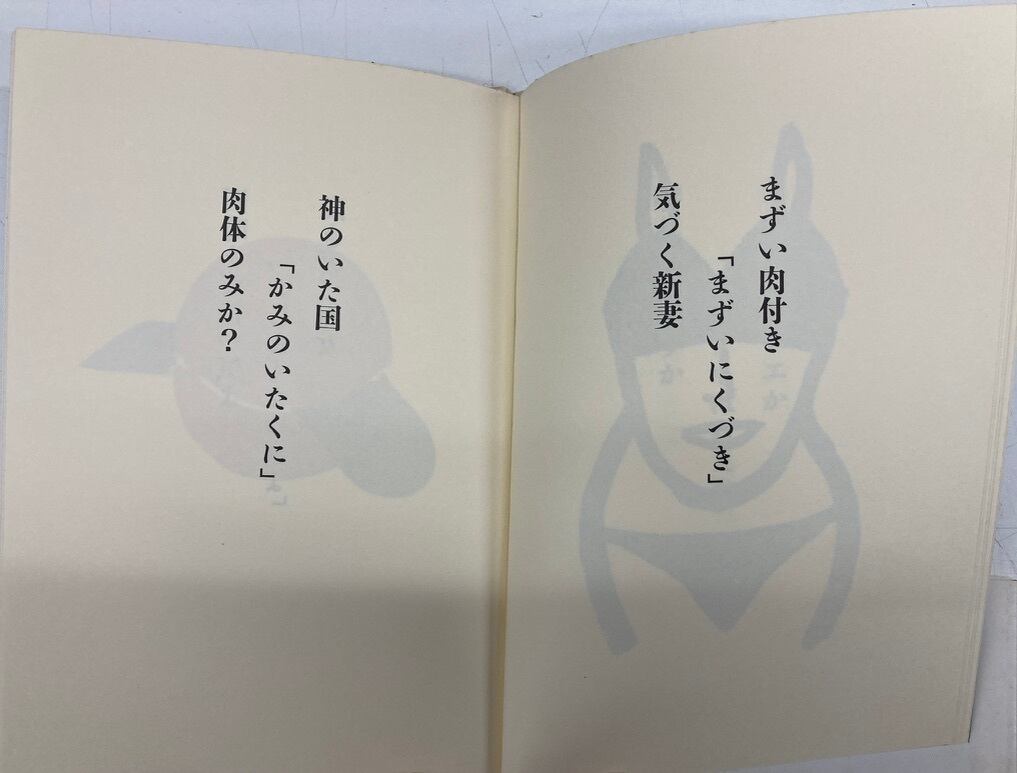 まずい肉付き
「まずいにくづき」
気づく新妻
神のいた国
「かみのいたくに」
肉体のみか？